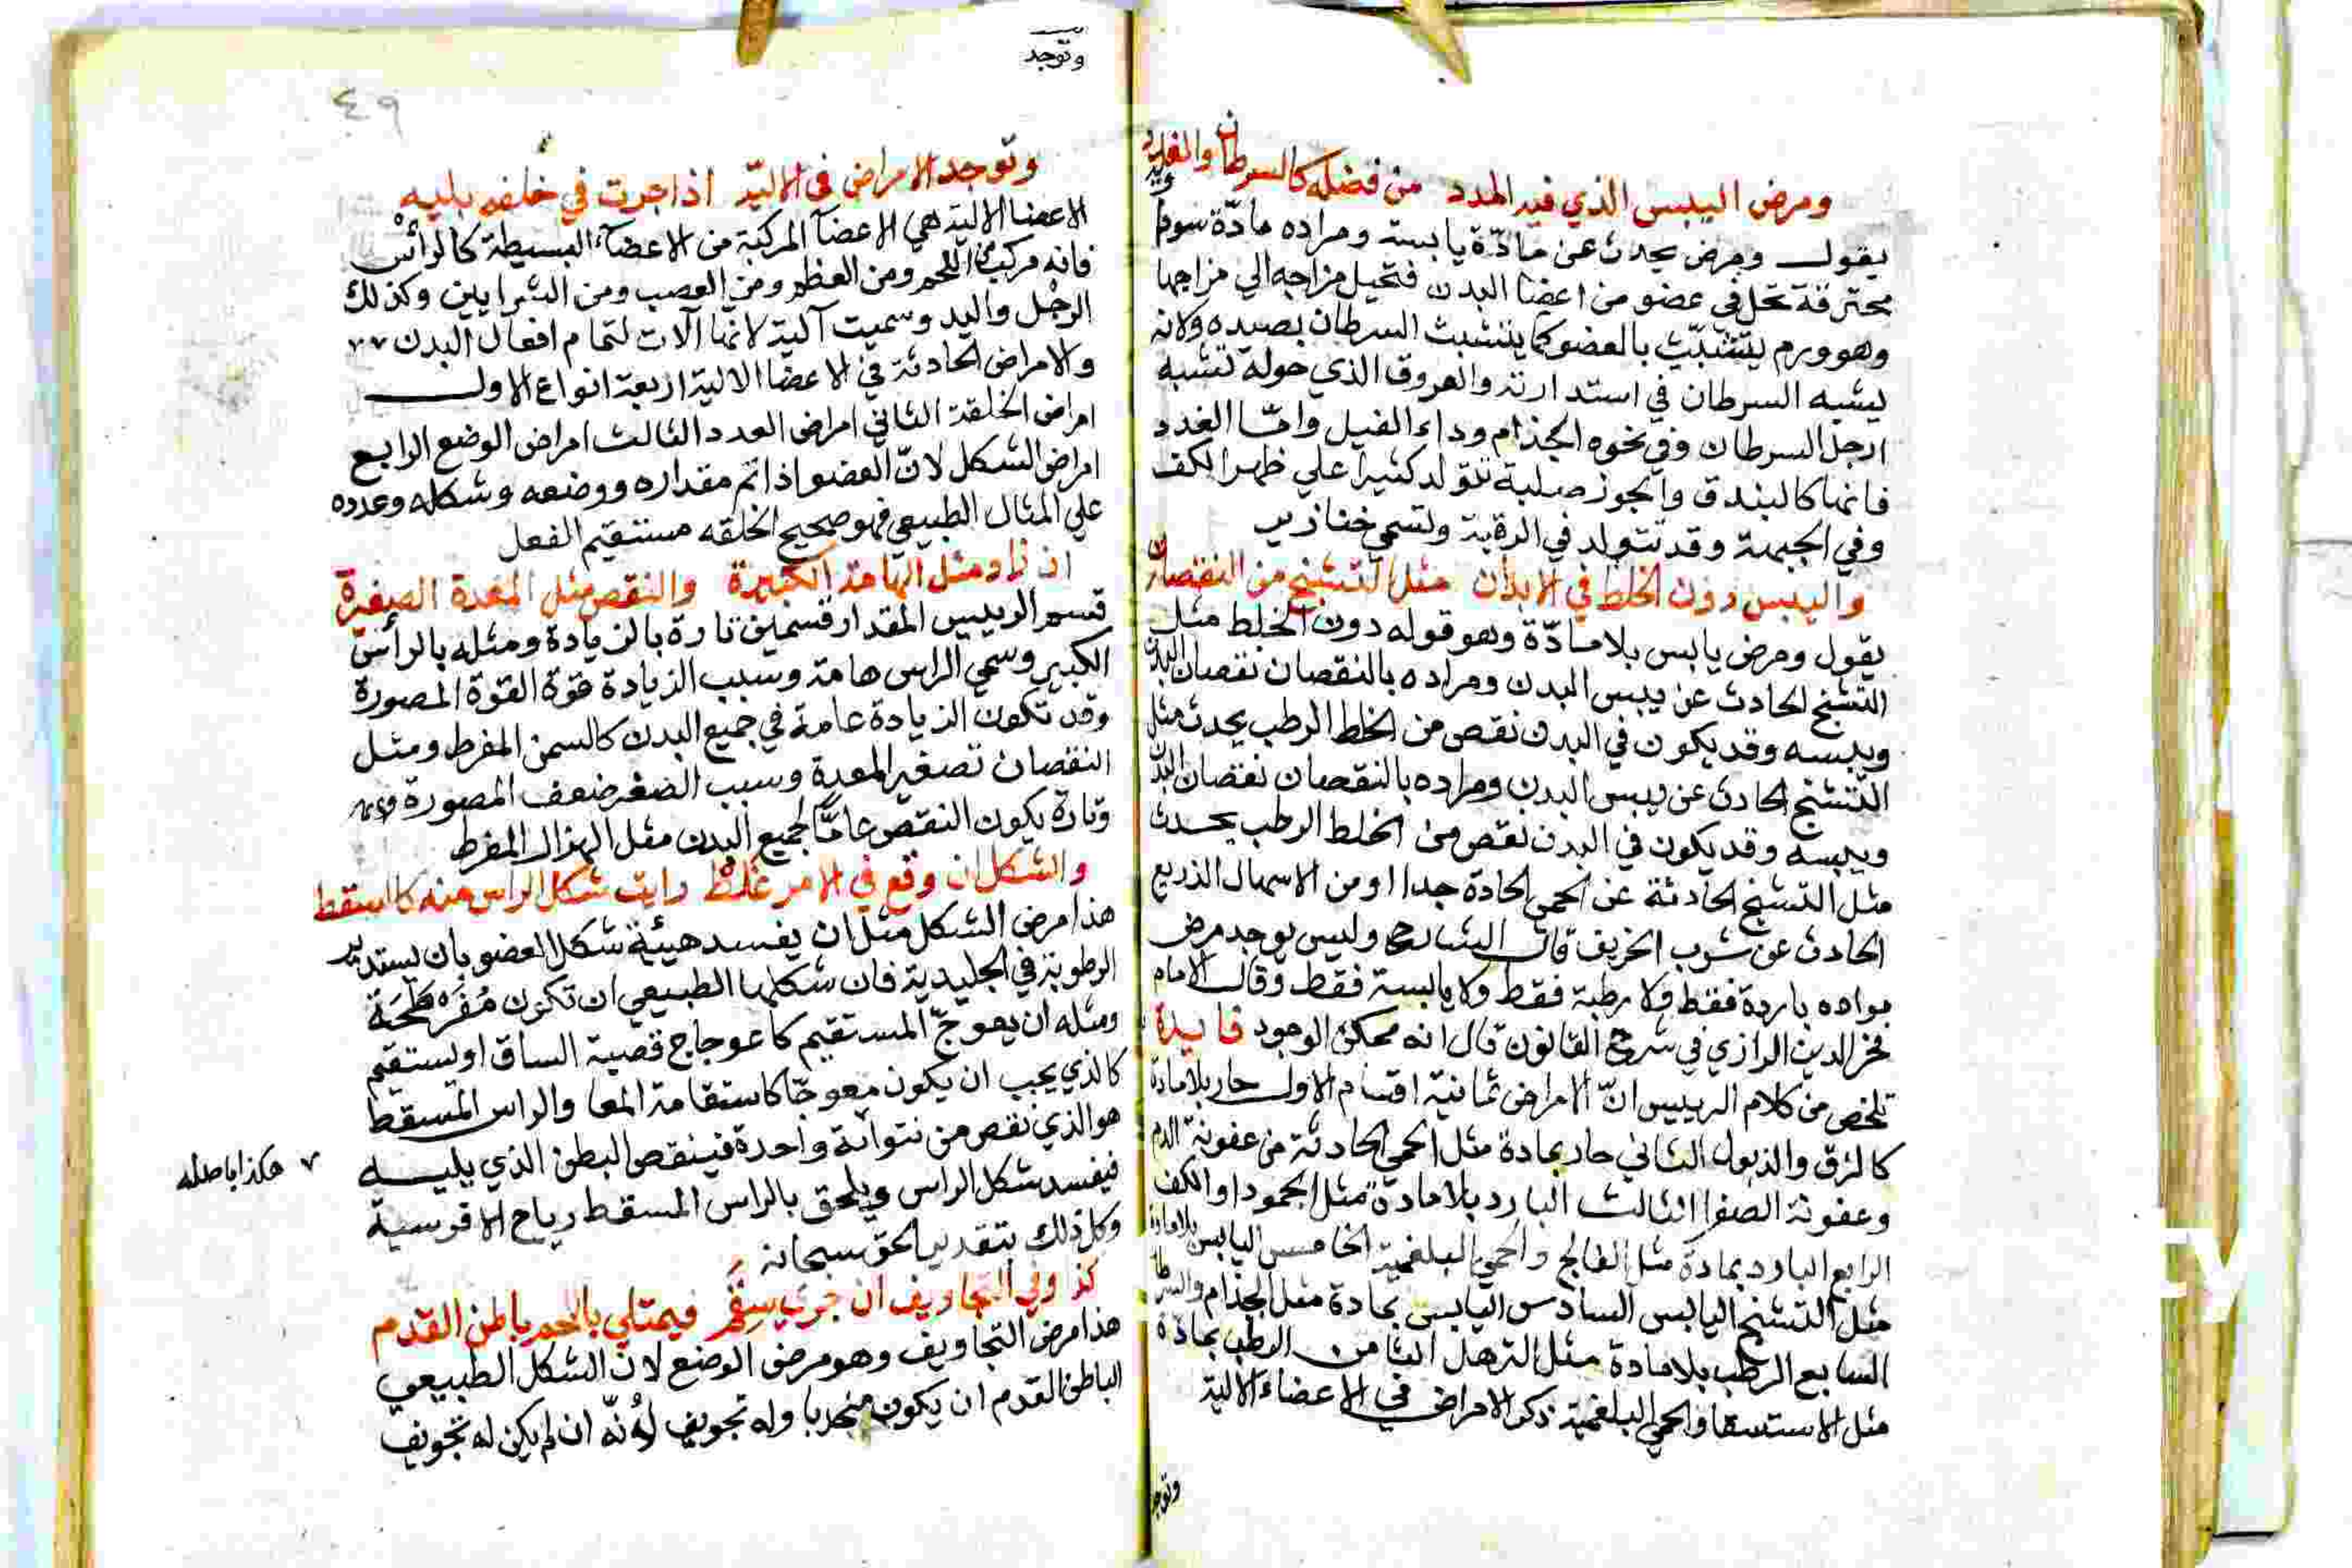 ومرض اليبس الذي فيه المدد من فضله كالسرطان والغدد
يقول ومرض يحدث عن مادّة يابسة ومراده مادّة سودا
محترقة تحل في عضو من اعضا البدن فتحيل مزاجه الي مزاجها
وهو ورم يتشبّث بالعضو كما يتشبث السرطان بصيده ولانه
يشبه السرطان في استدارته والعروق الذي حوله تشبه
ارجل السرطان وفي نحوه الجذام وداء الفيل وامّا الغدد
فانها كالبندق والجوز صلبة تتولد كثيرا علي ظهر الكف
وفي الجبهة وقد تتولد في الرقبة وتسمي خنازير
واليبس دون الخلط في الابدان مثل التشنج من النقصان
يقول ومرض يابس بلا مادّة وهو قوله دون الخلط مثل
التشنج الحادث عن يبس البدن ومراده بالنقصان نقصان البدن
ويبسه وقد يكون في البدن نقص من الخلط الرطب يحدث مثل
التشنج الحادث عن يبس البدن ومراده بالنقصان نقصان البدن
ويبسه وقد يكون في البدن نقص من الخلط الرطب يحدث
مثل التشنج الحادثة عن الحمي الحادة جدا او من الاسهال الذريع
الحادث عن شرب الخريف قال الشارح وليس يوجد مرض
مواده باردة فقط ولا رطبة فقط ولا يابسة فقط وقال الامام
فخر الدين الرازي في شرح القانون قال انه ممكن الوجود فايدة
تلخص من كلام الرييس انّ الامراض ثمانية اقسام الاول حار بلا مادة
كالدق والذبول الثاني حار بمادة مثل الحمي الحادثة من عفونة الدم
وعفونة الصفرا الثالث البارد بلا مادة مثل الجمود او الكف
الرابع البارد بمادة مثل الفالج والحمي البلغمية الخامس اليابس بلا مادة
مثل التشنج اليابس السادس اليابس بمادة مثل الجذام والسرطان
السابع الرطب بلا مادة مثل الترهل الثامن الرطب بمادة
مثل الاستسقا والحمي البلغمية ذكر الامراض في الاعضاء الالية
وتوجد
وتوجد
٤٩
وتوجد الامراض في الاليّه اذا جرت في خلقه بليه
الاعضا الالية هي الاعضآ المركبة من الاعضآء البسيطة كالرأس
فانه مركب من اللحم ومن العظم ومن العصب ومن الشرايين وكذلك
الرجل واليد وسميت آلية لانّها آلات لتمام افعال البدن
والامراض الحادثة في الاعضا الالية اربعة انواع الاول
امراض الخلقة الثاني امراض العدد الثالث امراض الوضع الرابع
امراض الشكل لانّ العضو اذا تم مقداره ووضعه وشكله وعدده
علي المثال الطبيعي فهو صحيح الخلقه مستقيم الفعل
ان زاد مثل الهامة الكبيرة والنقص مثل المعدة الصغيرة
قسم الرييس المقدار قسمين تارة بالزيادة ومثله بالرأس
الكبير وسمي الراس هامة وسبب الزيادة قوة القوة المصورة
وقد تكون الزيادة عامة في جميع البدن كالسمن المفرط ومثل
النقصان تصغير المعدة وسبب الصغر ضعف المصورة
وتارة يكون النقص عامًّا لجميع البدن مثل الهزال المفرط
والشكل ان وقع في الامر غلط رايت شكل الراس منه كالسقط
هذا مرض الشكل مثل ان يفسد هيئة شكل العضو بان يستدير
الرطوبة في الجليدية فان شكلها الطبيعي ان تكون مُفَرطَحَة
ومثله ان يعوجّ المستقيم كاعوجاج قصبة الساق او يستقيم
كالذي يجب ان يكون معوجّا كاستقامة المعا والراس المسقط
هو الذي نقص من نتوآته واحدة فينقص البطن الذي يليه
فيفسد شكل الراس ويلحق بالراس المسقط رياح الاقوسية
٧ هكذا باصله
وكل ذلك بتقدير الحق سبحانه
كذ وفي التجاويف ان جرت سقم فيمتلي باللحم باطن القدم
هذا مرض التجاويف وهو مرض الوضع لان الشكل الطبيعي
لباطن القدم ان يكون منجدبا وله تجويف لأنّه ان لم يكن له تجويف